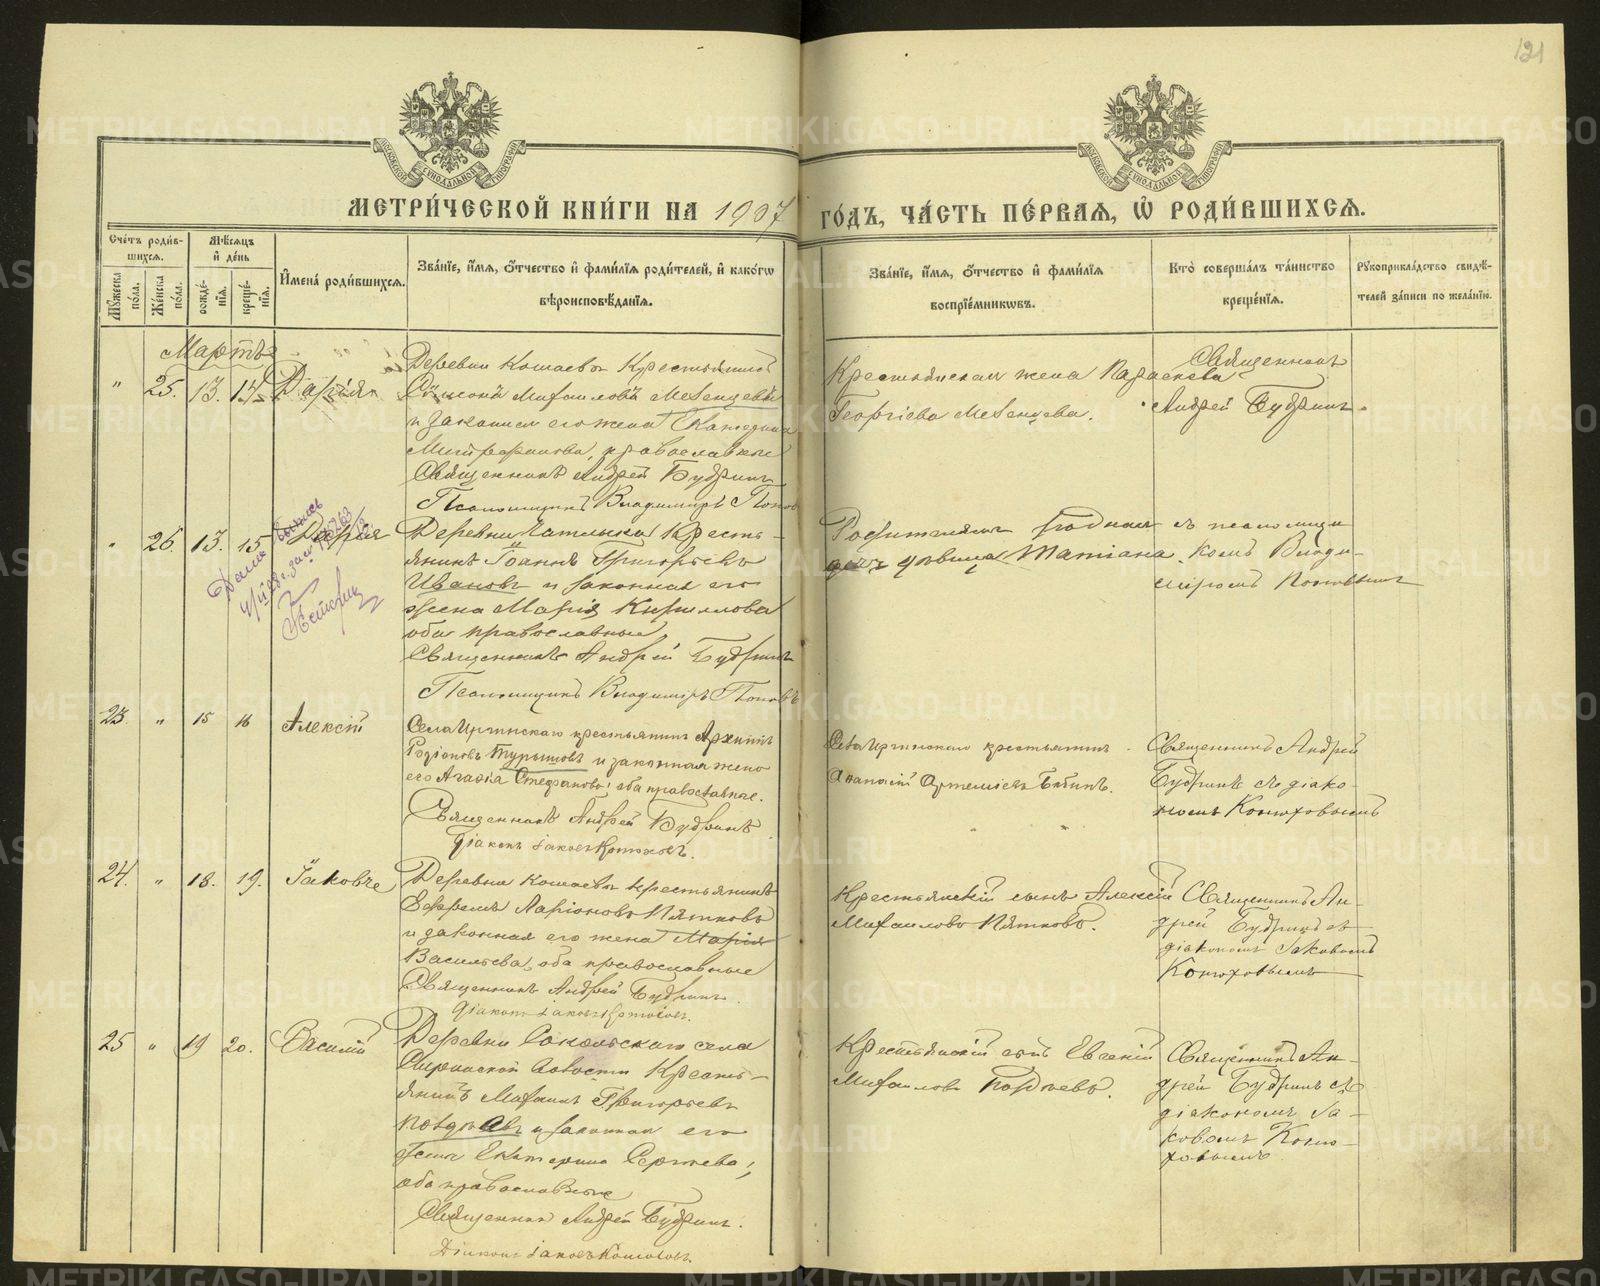 121
МОСКОВСКОЙ СѴНОДАЛЬНОЙ ТИПОГРАФІИ
МОСКОВСКОЙ СѴНОДАЛЬНОЙ ТИПОГРАФІИ
МЕТРИ́ЧЕСКОЙ КНИ́ГИ НА 1907 ГО́ДЪ, ЧА́СТЬ ПЕ́РВАЯ, Ѽ РОДИ́ВШИХСЯ.
Сче́тъ роди́в-
шихся.
Мѣ́сяцъ
и҆ де́нь
Мꙋ́жеска по́ла.
Же́нска по́ла.
рожде́-
нїя.
креще́-
нїя.
И҆мена̀ роди́вшихся.
Зва́нїе, и҆́мя, ѻ҆́тчество и҆ фами́лїя роди́телей, и҆ како́гѡ
вѣроисповѣ́данїя.
Зва́нїе, и҆́мя, ѻ҆́тчество и҆ фами́лїя
воспрїе́мникѡвъ.
Кто̀ соверша́лъ та́инство
креще́нїя.
Рꙋкоприкла́дство свидѣ́-
телей за́писи по жела́нїю.
Мартъ
" 25. 13. 14. Дарія
Деревни Кошаева Крестьянинъ
Сѵмеонъ Михаиловъ Мезенцевъ
и законная его жена Екатерина
Митрофанова, православные
Священникъ Андрей Будринъ
Псаломщикъ Владимиръ Попов
Крестьянская жена Параскева
Георгіева Мезенцева.
Священникъ
Андрей Будринъ.
" 26. 13. 15 Дарія
Дана выпись
Деревни Чатлыка Кресть-
янинъ Іоаннъ Григорьевъ
Ивановъ и законная его
жена Марія Кириллова
оба православные
Священникъ Андрей Будринъ
Псаломщикъ Владимиръ Поповъ
Родителям родная
дочь девица Татіана
с псаломщи
комъ Влади-
миромъ Поповымъ
23. " 15 16 Алексій
Села Иргинскаго крестьянинъ Архиппъ
Родіоновъ Турышовъ и законная жена
его Агафія Стефанова, оба православные.
Священникъ Андрей Будринъ
діаконъ Іаковъ Конюховъ.
Села Иргинскаго крестьянинъ
Аѳанасій Артеміевъ Бабинъ.
Священникъ Андрей
Будринъ съ діако-
номъ Конюховымъ
24. " 18. 19. Іаковъ
Деревни Кошаева крестьянинъ
Ефремъ Ларіоновъ Пятковъ
и законная его жена Марія
Васильева, оба православные
Священникъ Андрей Будринъ.
діаконъ Іаковъ Конюховъ.
Крестьянскій сынъ Алексій
Михаиловъ Пятковъ.
Священникъ Ан-
дрей Будринъ съ
діакономъ Іаковомъ
Конюховымъ
25 " 19 20. Василій
Деревни Сокольскаго села
волости Кресть-
янинъ Михаилъ Григорьевъ
Поздѣевъ и законная его
жена Екатерина Сергѣева,
оба православные
Священник Андрей Будрин.
Діаконъ Іаковъ Конюховъ.
Крестьянскій сынъ Евгеній
Михаиловъ Поздѣевъ.
Священникъ Ан-
дрей Будринъ съ
діакономъ Іа-
ковомъ Коню-
ховымъ
METRIKI.GASO-URAL.RU